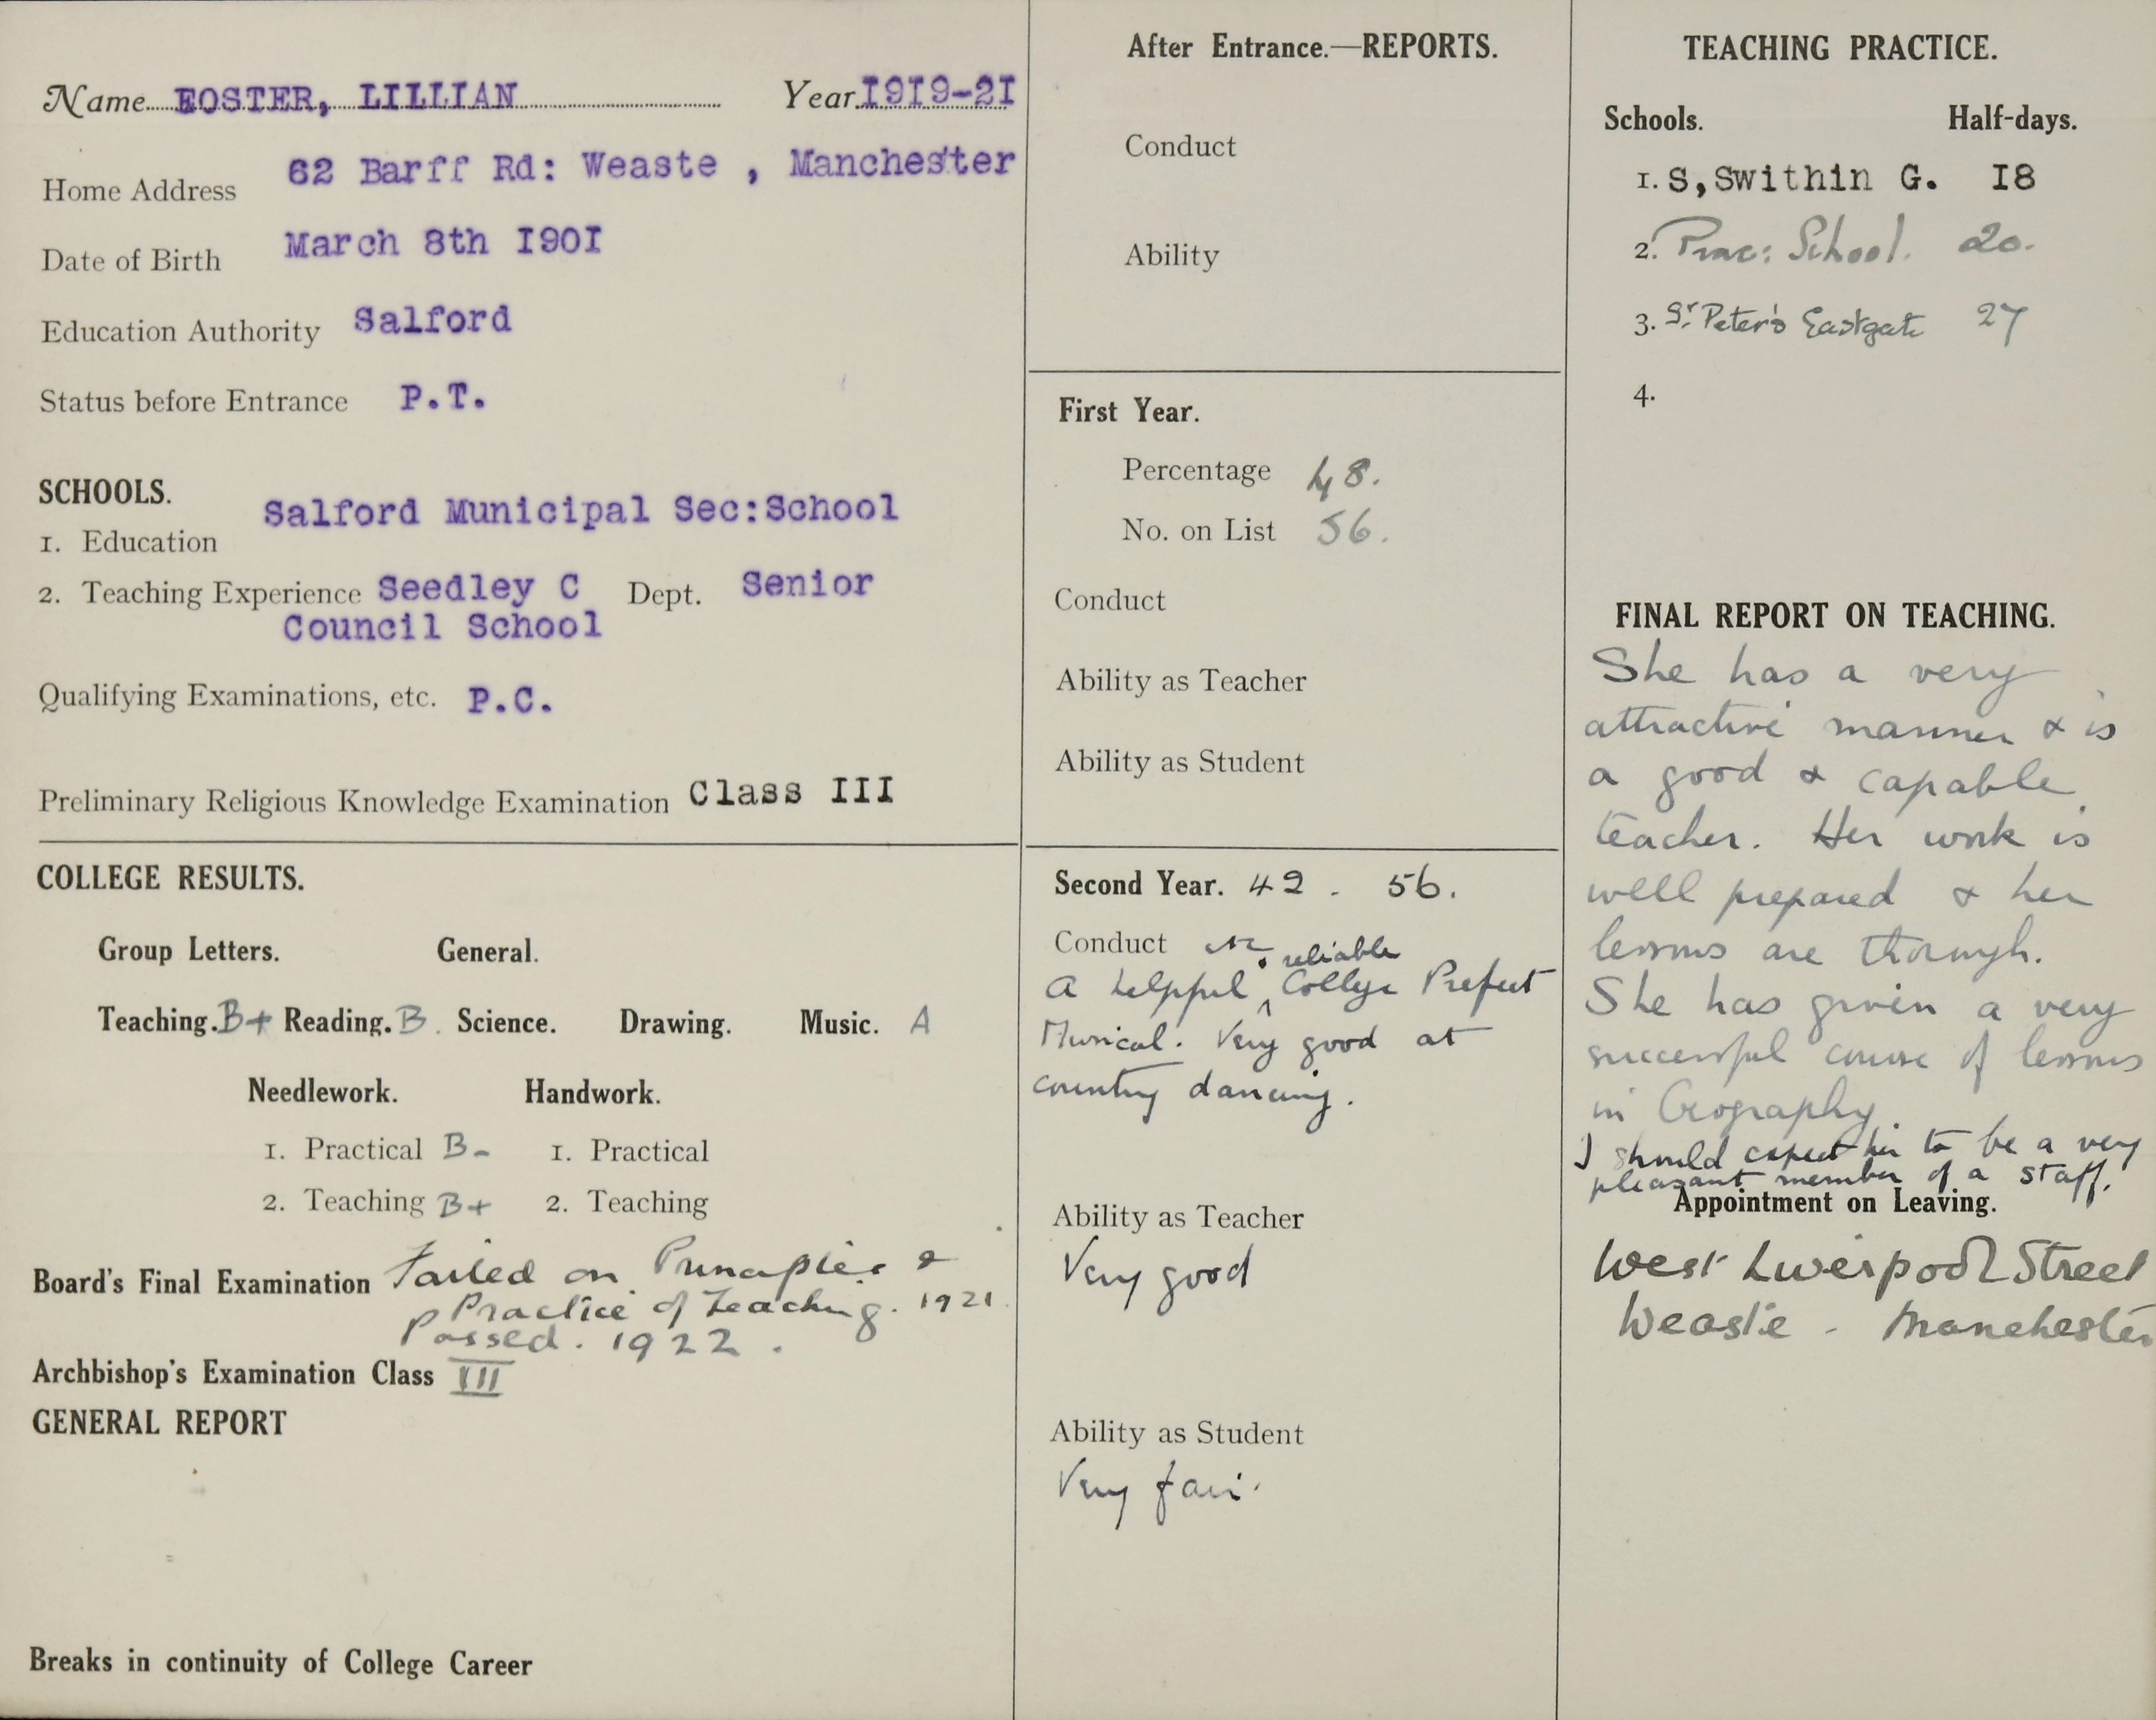 Name EOSTER, LILLIAN Year I9I9-2I
Home Address 62 Barff Rd: Weaste , Manchester
Date of Birth March 8th I90I
Education Authority Salford
Status before Entrance P.T.
SCHOOLS.
1. Education Salford Municipal Sec:School
2. Teaching Experience Seedley C Dept. Senior
Council School
Qualifying Examinations, etc. P.C.
Preliminary Religious Knowledge Examination Class III
COLLEGE RESULTS.
Group Letters. General.
Teaching. B+ Reading. B. Science. Drawing. Music. A
Needlework. Handwork.
1. Practical B- 1. Practical
2. Teaching B+ 2. Teaching
Board's Final Examination Failed on Principles &
Practice of Teaching. 1921.
Passed. 1922.
Archbishop's Examination Class III
GENERAL REPORT
Breaks in continuity of College Career
After Entrance.—REPORTS.
Conduct
Ability
First Year.
Percentage 48.
No. on List 56.
Conduct
Ability as Teacher
Ability as Student
Second Year. 42 . 56.
Conduct
reliable
A helpful College Prefect
Musical. Very good at
country dancing.
Ability as Teacher
Very good
Ability as Student
Very fair.
TEACHING PRACTICE.
Schools. Half-days.
1. S,Swithin G. I8
2. Prac: School. 20.
3. St Peter's Eastgate 27
4.
FINAL REPORT ON TEACHING.
She has a very
attractive manner & is
a good & capable
teacher. Her work is
well prepared & her
lessons are thorough.
She has given a very
successful course of lessons
in Geography.
I should expect her to be a very
pleasant member of a staff.
Appointment on Leaving.
West Liverpool Street
Weaste - Manchester